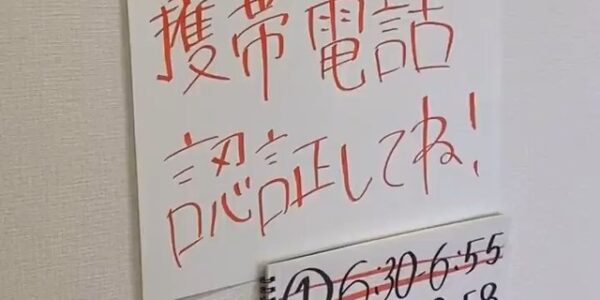 携帯電話
認証してね!
① 6:30-6:55